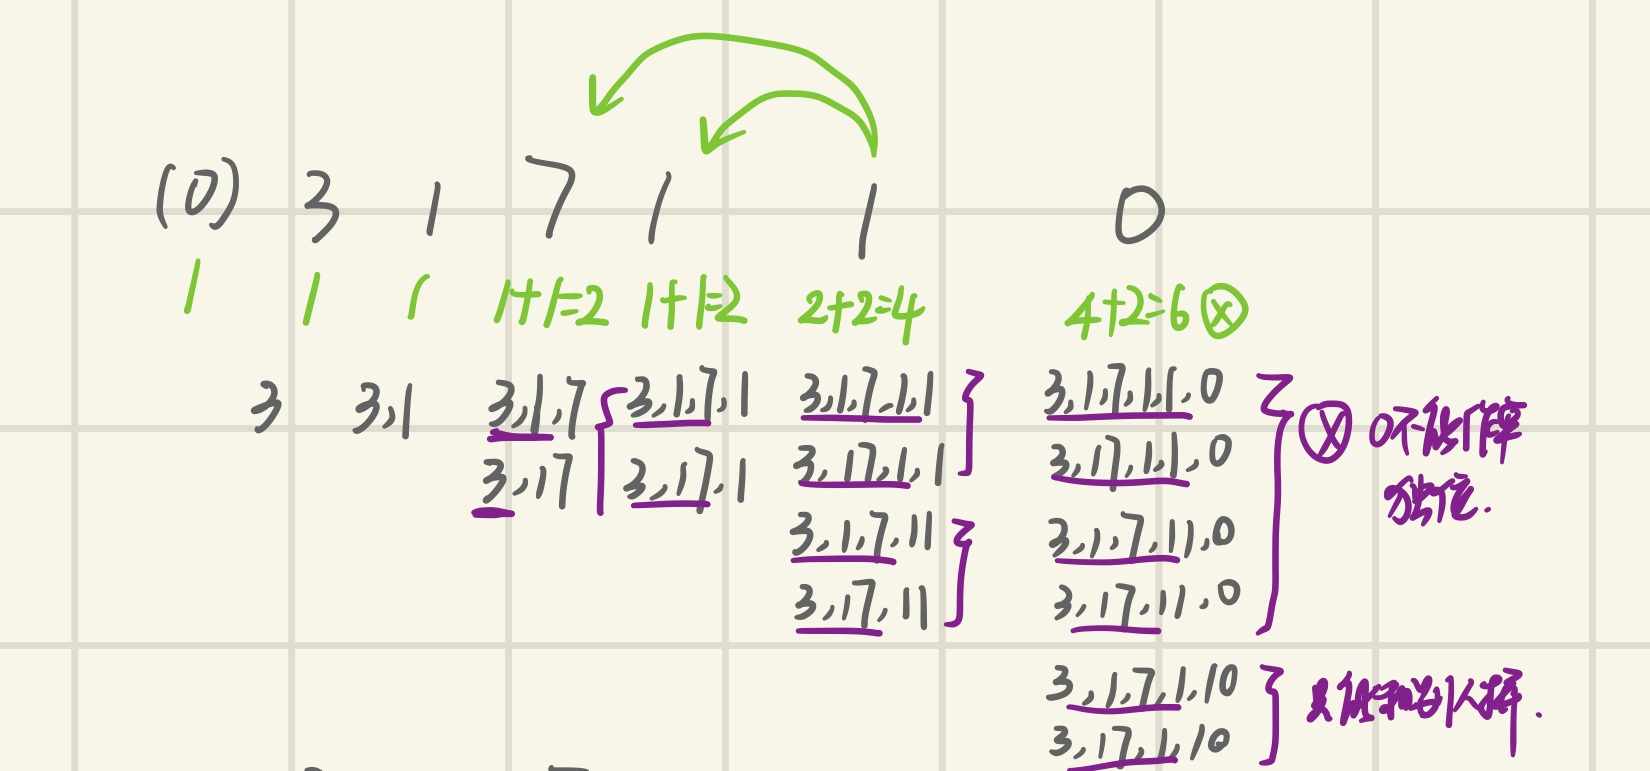 (0) 3 1 7 1 1 0
1 1 1 1+1=2 1+1=2 2+2=4 4+2=6 ⊗
3 3,1 3,1,7 3,1,7,1 3,1,7,1,1 3,1,7,1,1,0
3,17 3,17,1 3,17,1,1 3,17,1,1,0
3,1,7,11 3,1,7,11,0
3,17,11 3,17,11,0
⊗ 0不能
3,1,7,1,10
3,17,1,10